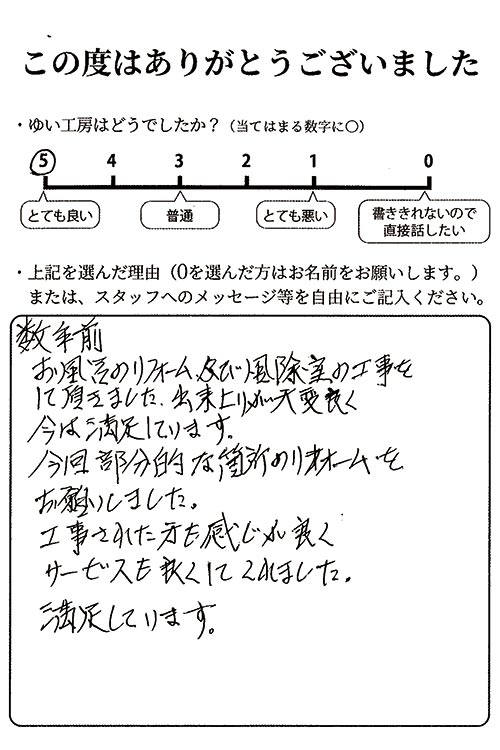 この度はありがとうございました
・ゆい工房はどうでしたか？（当てはまる数字に○）
5 4 3 2 1 0
とても良い 普通 とても悪い 書ききれないので直接話したい
・上記を選んだ理由（0を選んだ方はお名前をお願いします。）
または、スタッフへのメッセージ等を自由にご記入ください。
数年前
お風呂のリフォーム及び風除室の工事を
して頂きました、出来上りが大変良く
今は満足しています。
今回部分的な箇所のリホームを
お願いしました。
工事された方も感じが良く
サービスも良くしてくれました。
満足しています。